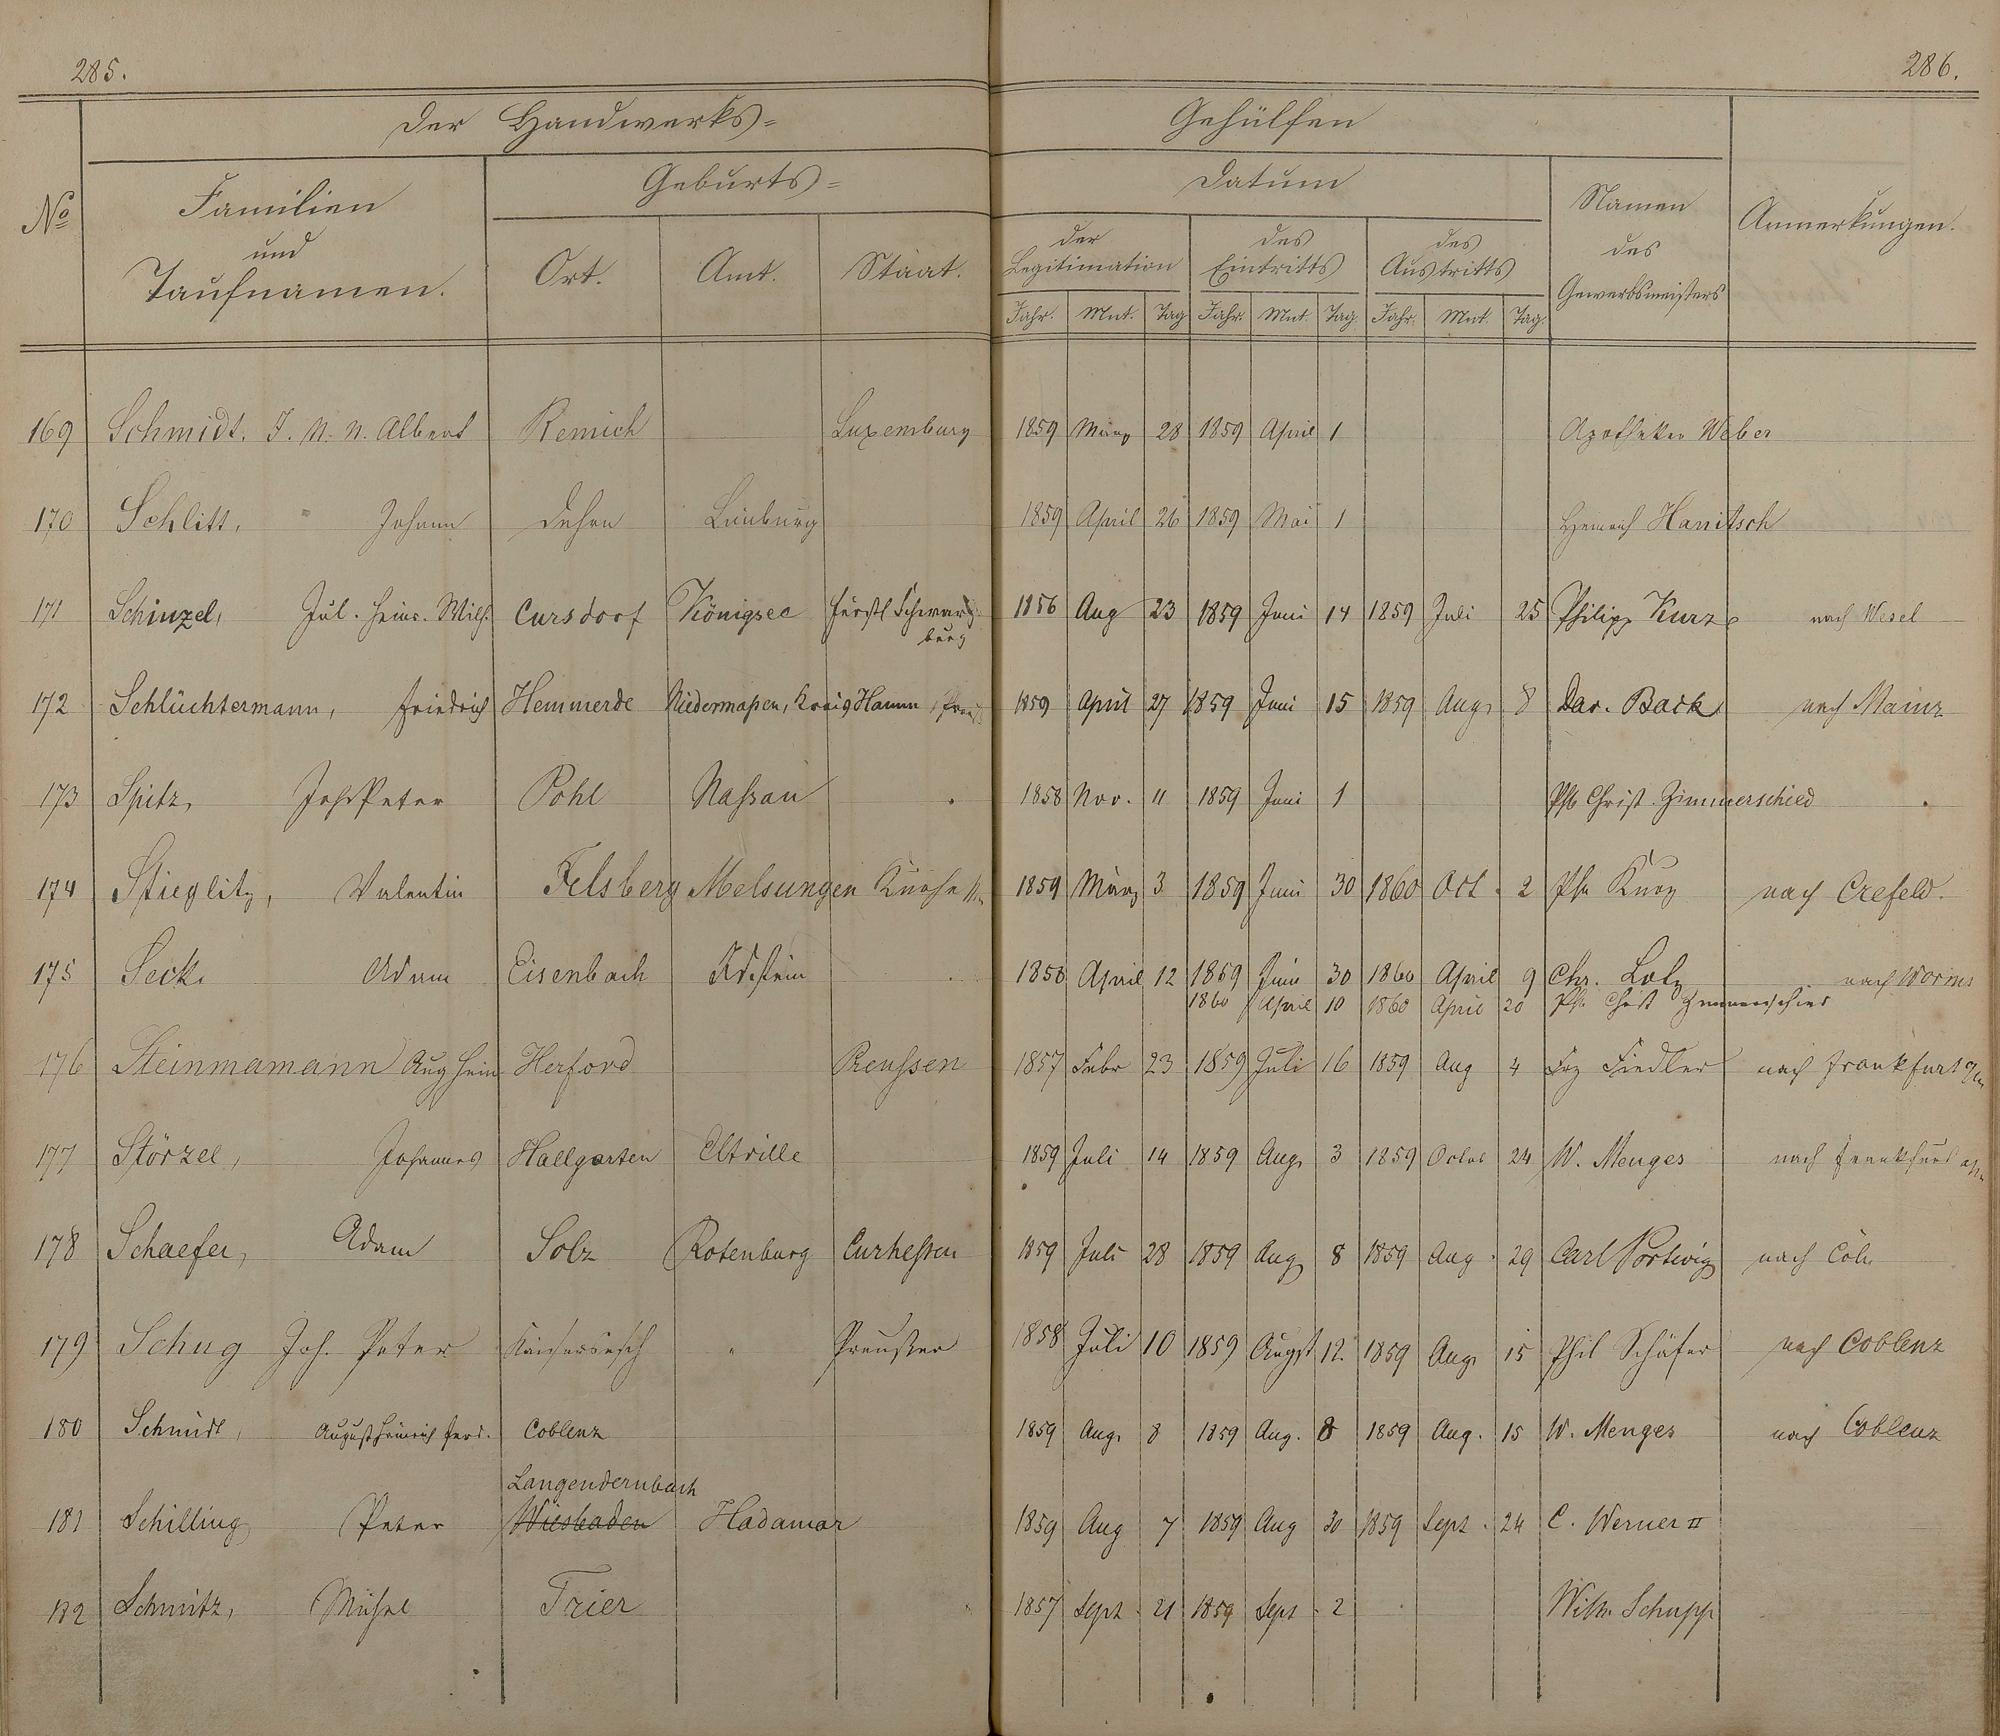 285.
286.
Der Handwerks= Gehülfen
No
Familien und Taufnamen.
Geburts=
Ort. Amt. Staat.
Datum
der Legitimation
des Eintritts
des Austritts
Jahr. Mnt. Tag Jahr. Mnt. Tag Jahr. Mnt. Tag.
Namen des Gewerbsmeisters
Anmerkungen.
169 Schmidt. J. N. N. Albert Remich Luxemburg 1859 März 28 1859 April 1 Apotheker Weber
170 Schlitt, Johann Dehrn Limburg 1859 April 26 1859 Mai 1 Heinrich Hanitsch
171 Schinzel, Jul. Heinr. Wilh. Cursdorf Königsee Fürstl Schwarz
burg 1856 Aug 23 1859 Juni 14 1859 Juli 25 Philipp Kurz nach Wesel
172 Schlüchtermann, Friedrich Hemmerde Niedermaßen, Kreis Hamm, Preuß 1859 April 27 1859 Juni 15 1859 Aug. 8 Dav. Back nach Mainz
173 Spitz, Joh Peter Pohl Naßau 1858 Nov. 11 1859 Juni 1 Phil Christ. Zimmerschied
174 Stieglitz, Valentin Felsberg Melsungen 1859 März 3 1859 Juni 30 1860 Oct. 2 Ph. Kurz nach Crefeld.
175 Seck. Adam Eisenbach Idstein 1858 April 12 1859 Juni 30 1860 April 9 Chr. Lotz nach Worms
1860 April 10 1860 April 20 Ph. Christ Zimmerschied
176 Steinmamann Aug Hein Herford Preußsen 1857 Febr 23 1859 Juli 16 1859 Aug 4 Frz Fiedler nach Frankfurt a/m
177 Störzel, Johannes Hallgarten Eltville 1859 Juli 14 1859 Aug. 3 1859 Octob 24 W. Menges nach Frankfurt a/m
178 Schaefer, Adam Solz Rotenburg Curheßen 1859 Juli 28 1859 Aug 8 1859 Aug. 29 Carl Portwig nach Cöln
179 Schug Joh. Peter Kaisersesch " Preußen 1858 Juli 10 1859 Augst 12 1859 Aug. 15 Phil Schäfer nach Coblenz
180 Schmidt, August Heinrich Ferd. Coblenz 1859 Aug. 8 1859 Aug. 8 1859 Aug. 15 W. Menges nach Coblenz
Langendernbach
181 Schilling Peter Wiesbaden Hadamar 1859 Aug 7 1859 Aug 30 1859 Sept. 24 C. Werner II
182 Schmitz, Michel Trier 1857 Sept. 21 1859 Sept. 2 Wilh. Schupp